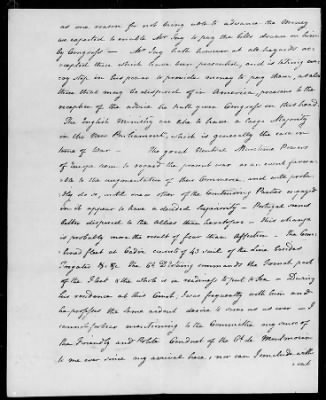 as one reason for not being able to advance the Money
we expected to enable Mr Jay to pay the bills drawn on him
by Congress — Mr Jay hath however at all hazards ac-
cepted those which have been presented, and is taking eve-
ry step in his power to provide money to pay them, & also
those that may be disposed of in America, previous to the
reception of the advice he hath given Congress on this head.
The English Ministry are like to have a large Majority
in the New Parliament, which is generally the case in
time of War — The great Neutral Maritime Powers
of Europe seem to regard the present war as an event favor-
able to the augmentation of their Commerce, and will proba-
bly do so, until one or other of the Contending Parties engaged
in it appear to have a decided Superiority — Portugal seems
better disposed to the allies than heretofore — this change
is probably more the result of fear than affection — The Com-
bined fleet at Cadiz consists of 43 sail of the Line besides
frigates &c. &c. the Ct. D'Estaing commands the French part
of the Fleet & the whole is in readiness to put to Sea — During
his residence at this Court, I was frequently with him and
he professes the same ardent desire to serve us as ever — I
cannot forbear mentioning to the Committee my sense of
the Friendly and Polite Conduct of the Ct. de Montmorin
to me ever since my arrival here, nor can I conclude with-
out